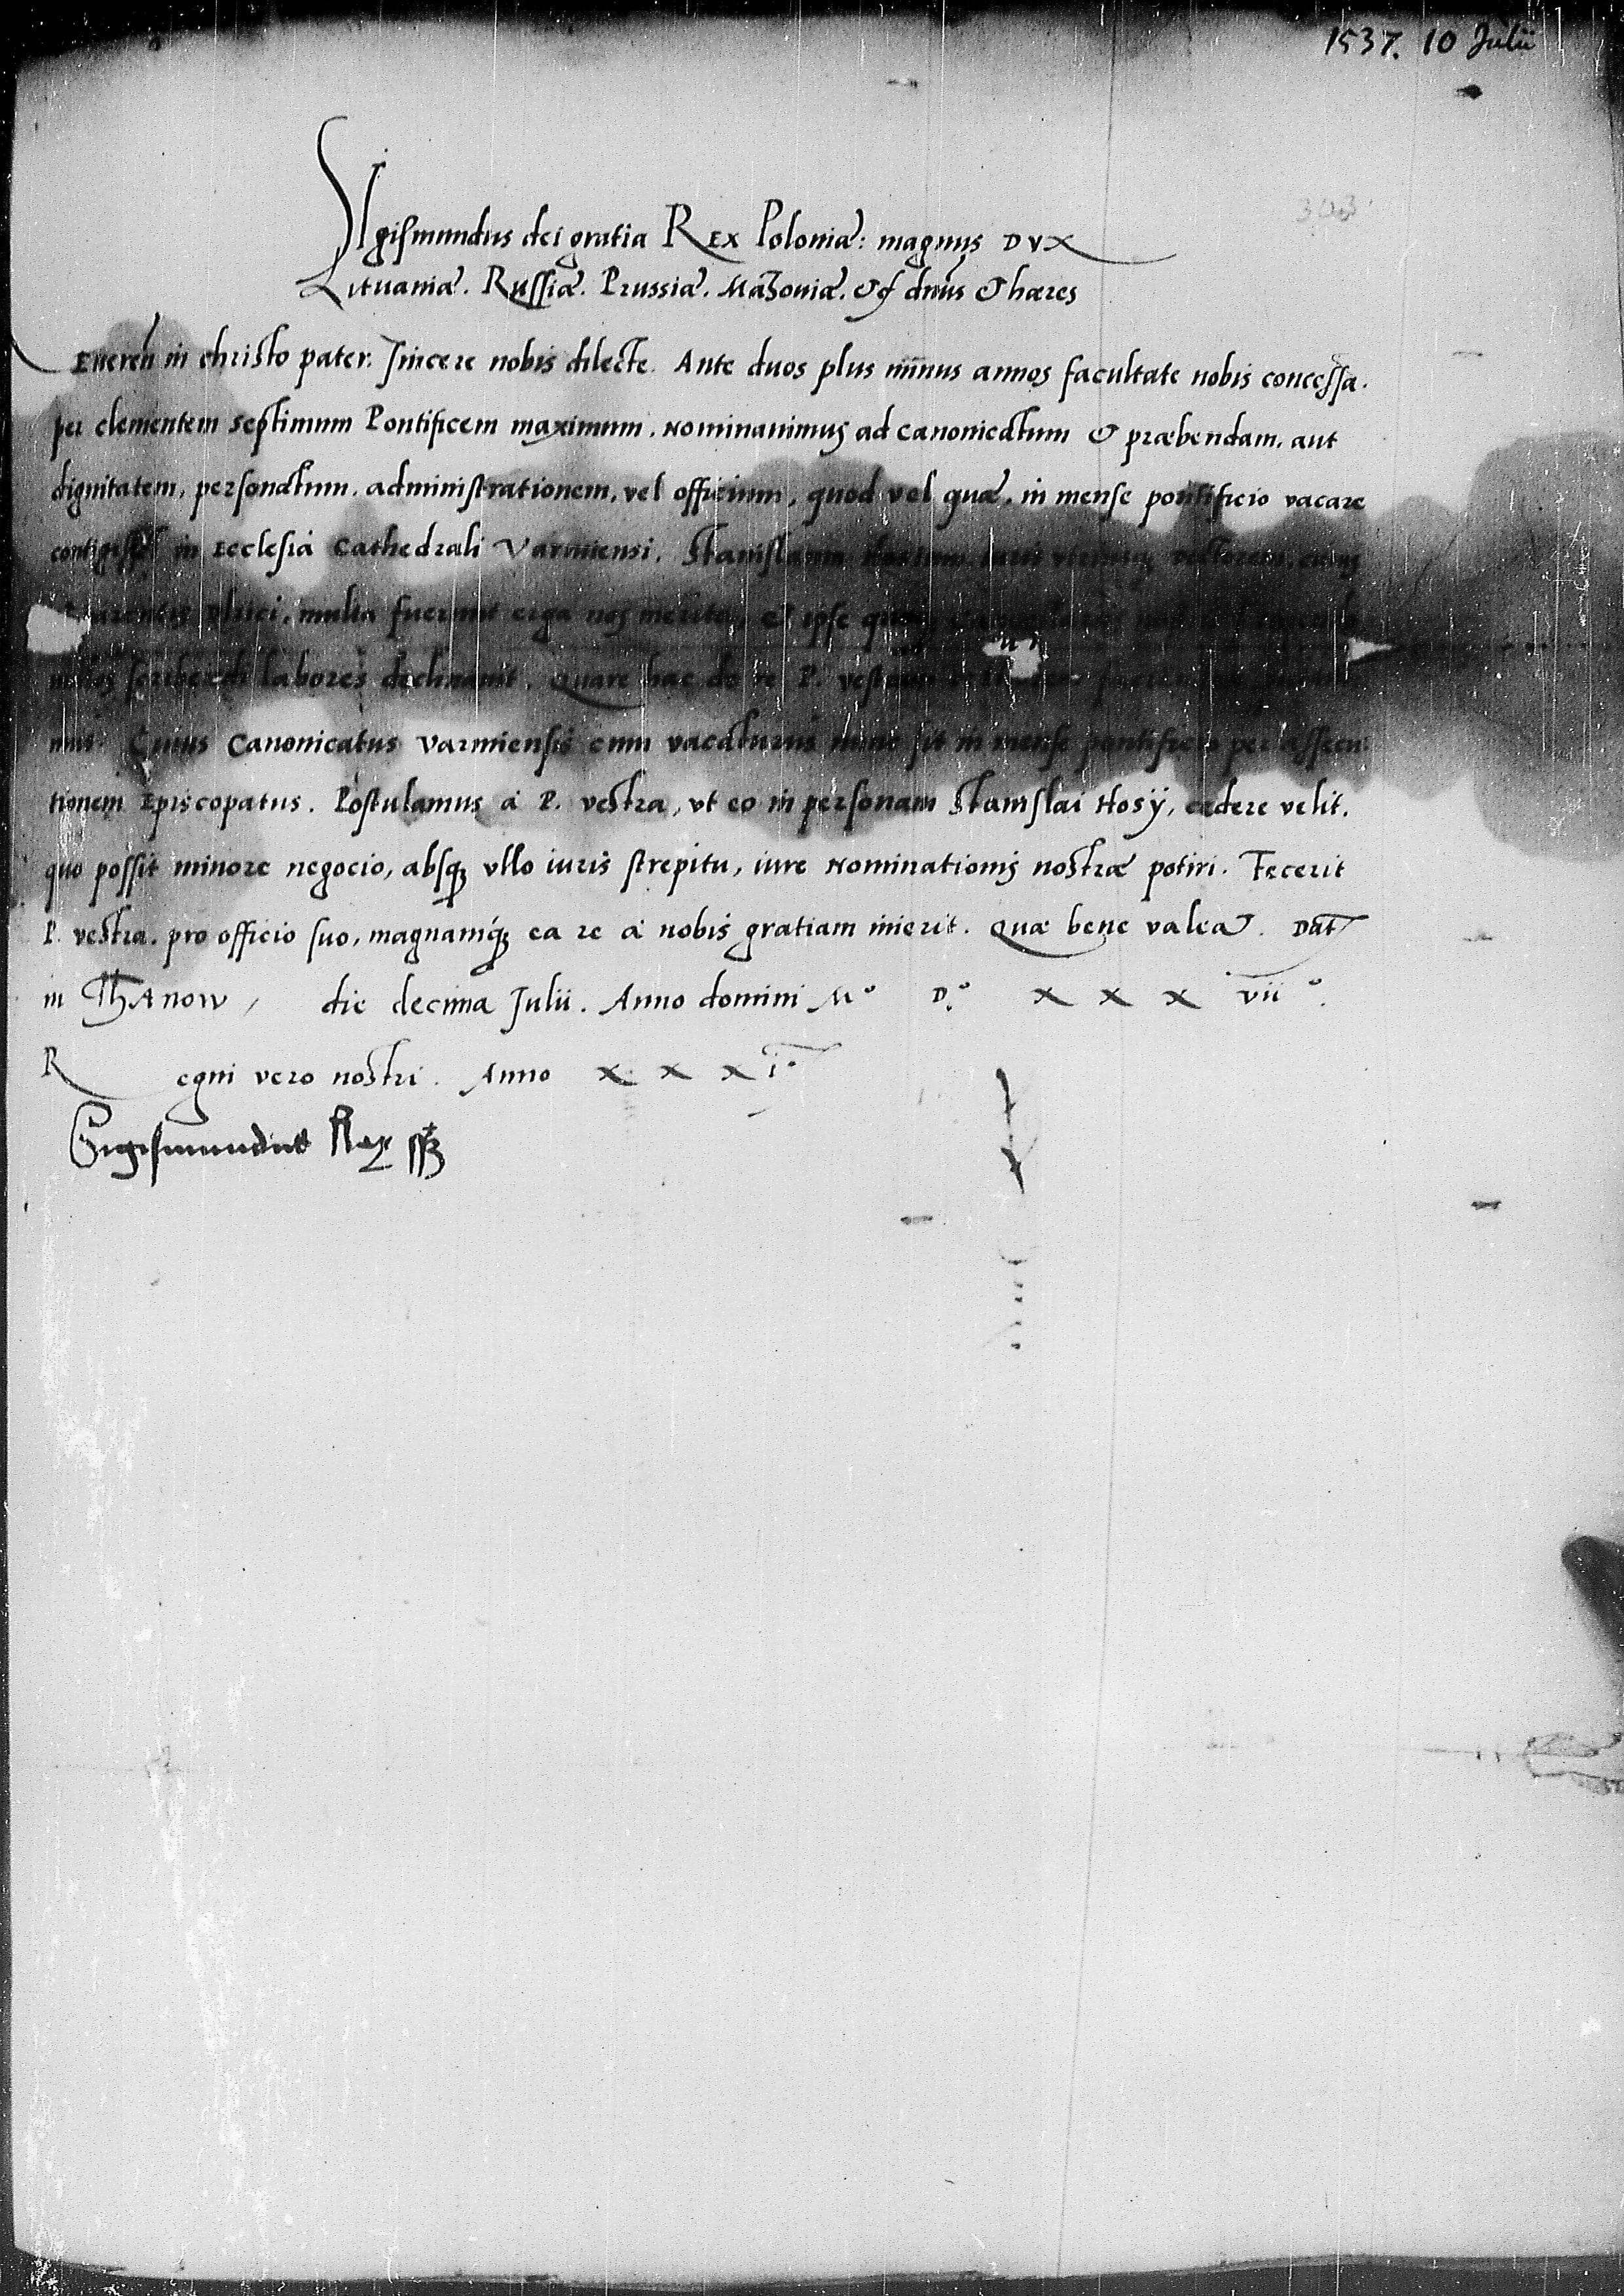 1537. 10 Julii
303
Sigismundus dei gratia REX Poloniæ: magnus DVX
Lituaniæ. Russiæ. Prussiæ. Mazoviæ. &c dn̄us & hæres
Reueren̄ in christo pater. sincere nobis dilecte. Ante duos plus minus annos facultate nobis concessa.
per clementem septimum Pontificem maximum. Nominauimus ad canonicatum & præbendam. aut
dignitatem, personatum. administrationem, vel officium, quod vel quæ. in mense pontificio vacare
contigisset in Ecclesia Cathedrali Varmiensi. Stanislaum Hosium. iuris vtriusq; doctorem. cuius
parentis Vlrici, multa fuerunt erga nos merita, & ipse
scribendi labores declinauit. Quare hac de re P. vestram
mus. Cuius Canonicatus Varmiensis cum vacaturus nunc sit in mense pontificio per assecu:
tionem Episcopatus. Postulamus a P. vestra, vt eo in personam Stanislai Hosÿ, cedere velit.
quo possit minore negocio, absq; vllo iuris strepitu, iure Nominationis nostræ potiri. Fecerit
P. vestra. pro officio suo, magnamq; ea re a nobis gratiam inierit. Quæ bene valeat. Dat̄
in Thanow, die decima Julii. Anno domini Mº Dº. x x x viiº.
Regni vero nostri. Anno x x x iº
Sigismundus Rex sst